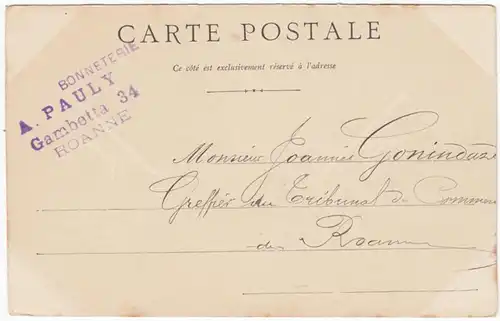 CARTE POSTALE
Ce côté est exclusivement réservé à l'adresse
BONNETERIE
A. PAULY
Gambetta 34
ROANNE
Monsieur Joannès
Greffier du Tribunal de Commerce
de Roanne